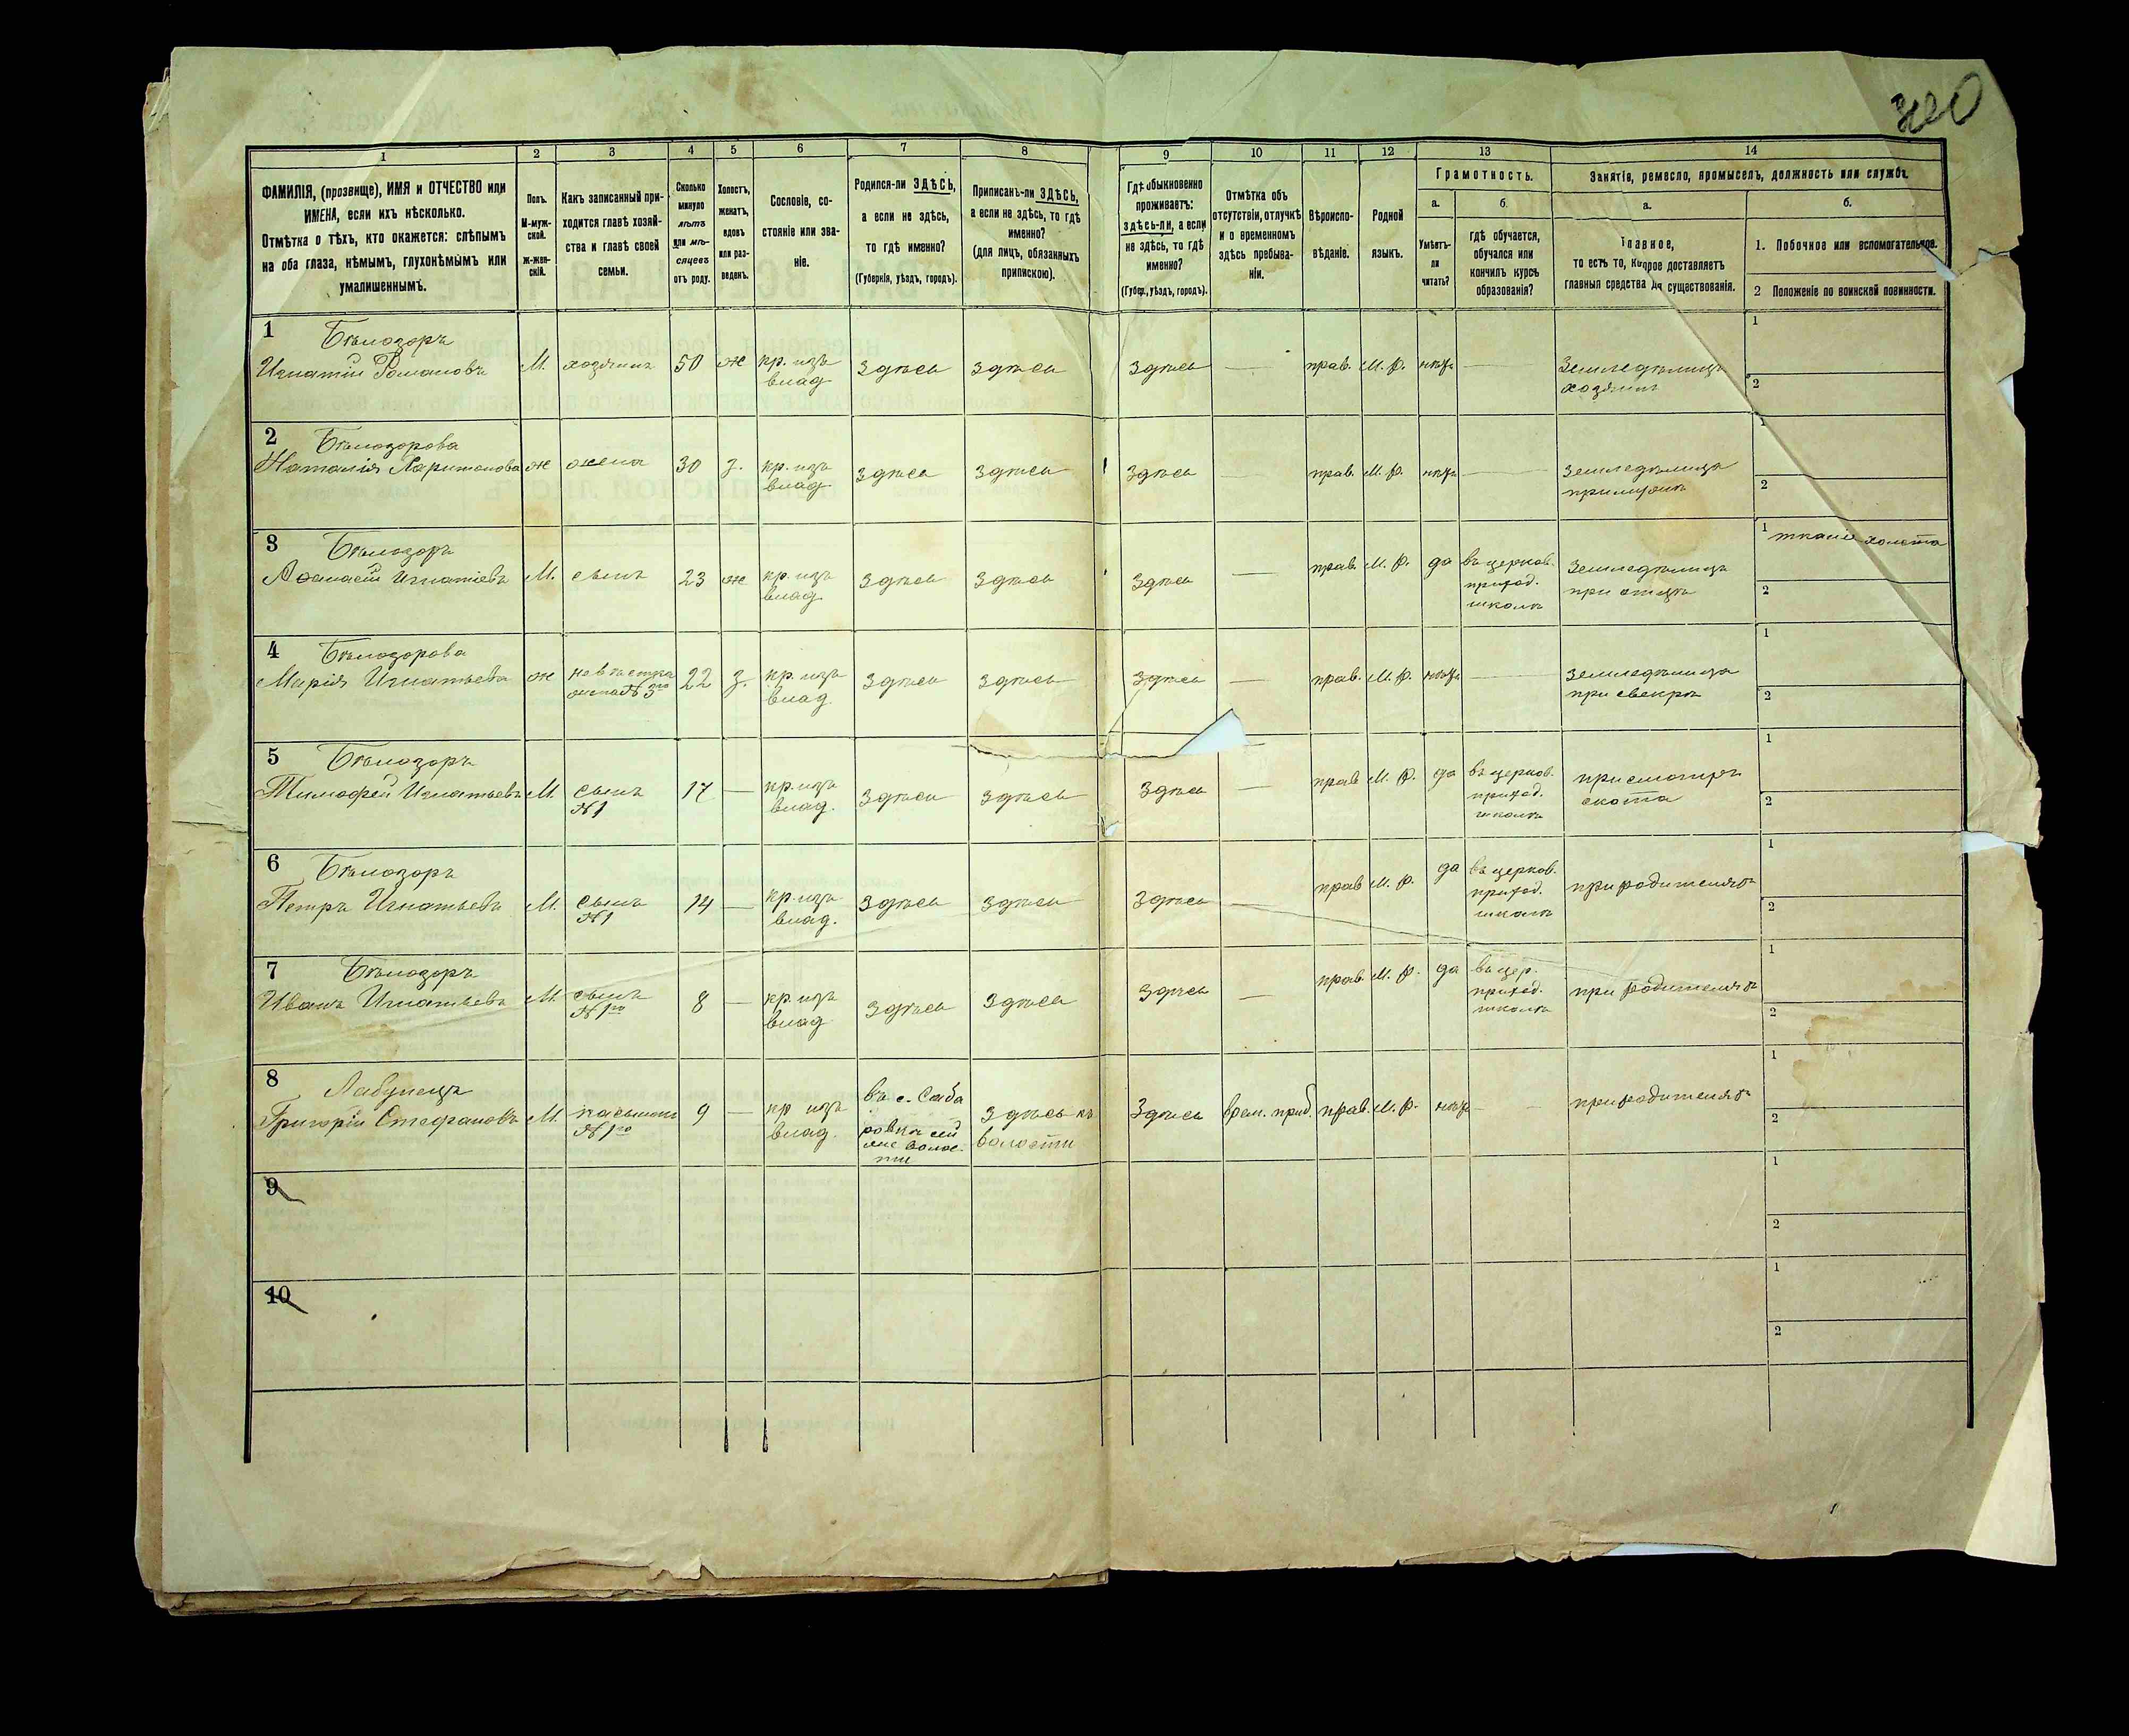 1 2 3 4 5 6 7 8 9 10 11 12 13 14
ФАМИЛІЯ, (прозвище), ИМЯ и ОТЧЕСТВО или
ИМЕНА, если ихъ нѣсколько.
Отмѣтка о тѣхъ, кто окажется: слѣпымъ
на оба глаза, нѣмымъ, глухонѣмымъ или
умалишеннымъ.
Полъ.
М-муж-
ской.
Ж-жен-
скій.
Какъ записанный при-
ходится главѣ хозяй-
ства и главѣ своей
семьи.
Сколько
минуло
лѣтъ
или мѣ-
сяцевъ
отъ роду.
Холостъ,
женатъ,
вдовъ
или раз-
веденъ.
Сословіе, со-
стояніе или зва-
ніе.
Родился-ли ЗДѢСЬ,
а если не здѣсь,
то гдѣ именно?
(Губернія, уѣздъ, городъ).
Приписанъ-ли ЗДѢСЬ,
а если не здѣсь, то гдѣ
именно?
(для лицъ, обязанныхъ
припискою).
Гдѣ обыкновенно
проживаетъ:
здѣсь-ли, а если
не здѣсь, то гдѣ
именно?
(Губер., уѣздъ, городъ).
Отмѣтка объ
отсутствіи, отлучкѣ
и о временномъ
здѣсь пребыва-
ніи.
Вѣроиспо-
вѣданіе.
Родной
языкъ.
Грамотность.
а.
Умѣетъ-
ли
читать?
б.
гдѣ обучается,
обучался или
кончилъ курсъ
образованія?
Занятіе, ремесло, промыселъ, должность или служба.
а.
Главное,
то есть то, которое доставляетъ
главныя средства для существованія.
б.
1. Побочное или вспомогательное.
2 Положеніе по воинской повинности.
1 Бѣлозоръ
Игнатій Романовъ М. хозяинъ 50 ж кр. изъ влад здѣсь здѣсь здѣсь — прав. М. р. нѣтъ — Земледѣлецъ
хозяинъ
2 Бѣлозорова
Наталія Харитонова ж жена 30 з. кр. изъ влад здѣсь здѣсь здѣсь — прав. М. р. нѣтъ — земледѣлица
при мужѣ
3 Бѣлозоръ
Афанасій Игнатіевъ М. сынъ 23 ж кр. изъ влад здѣсь здѣсь здѣсь — прав. М. р. да въ церков. приход. школѣ Земледѣлецъ
при отцѣ
1 тканіе холста
4 Бѣлозорова
Марія Игнатьева ж невѣстка жена № 3го 22 з. кр. изъ влад. здѣсь здѣсь здѣсь — прав. М. р. нѣтъ — земледѣлица
при свекрѣ
5 Бѣлозоръ
Тимофей Игнатьевъ М. сынъ № 1 17 — кр. изъ влад. здѣсь здѣсь здѣсь — прав М. р. да въ церков. приход. школѣ присмотръ
скота
6 Бѣлозоръ
Петръ Игнатьевъ М. сынъ № 1 14 — кр. изъ влад. здѣсь здѣсь здѣсь — прав М. р. да въ церков. приход. школѣ при родителяхъ
7 Бѣлозоръ
Иванъ Игнатьевъ М. сынъ № 1го 8 — кр. изъ влад здѣсь здѣсь здѣсь — прав. М. р. да въ цер. приход. школѣ при родителяхъ
8 Лабунецъ
Григорій Стефановъ М. пасынокъ № 1го 9 — кр изъ влад. въ с. Саба
ровкѣ сей
же волос-
ти
здѣсь въ
волости
Здѣсь врем. приб. прав. М. р. нѣтъ — при родителяхъ
9
10